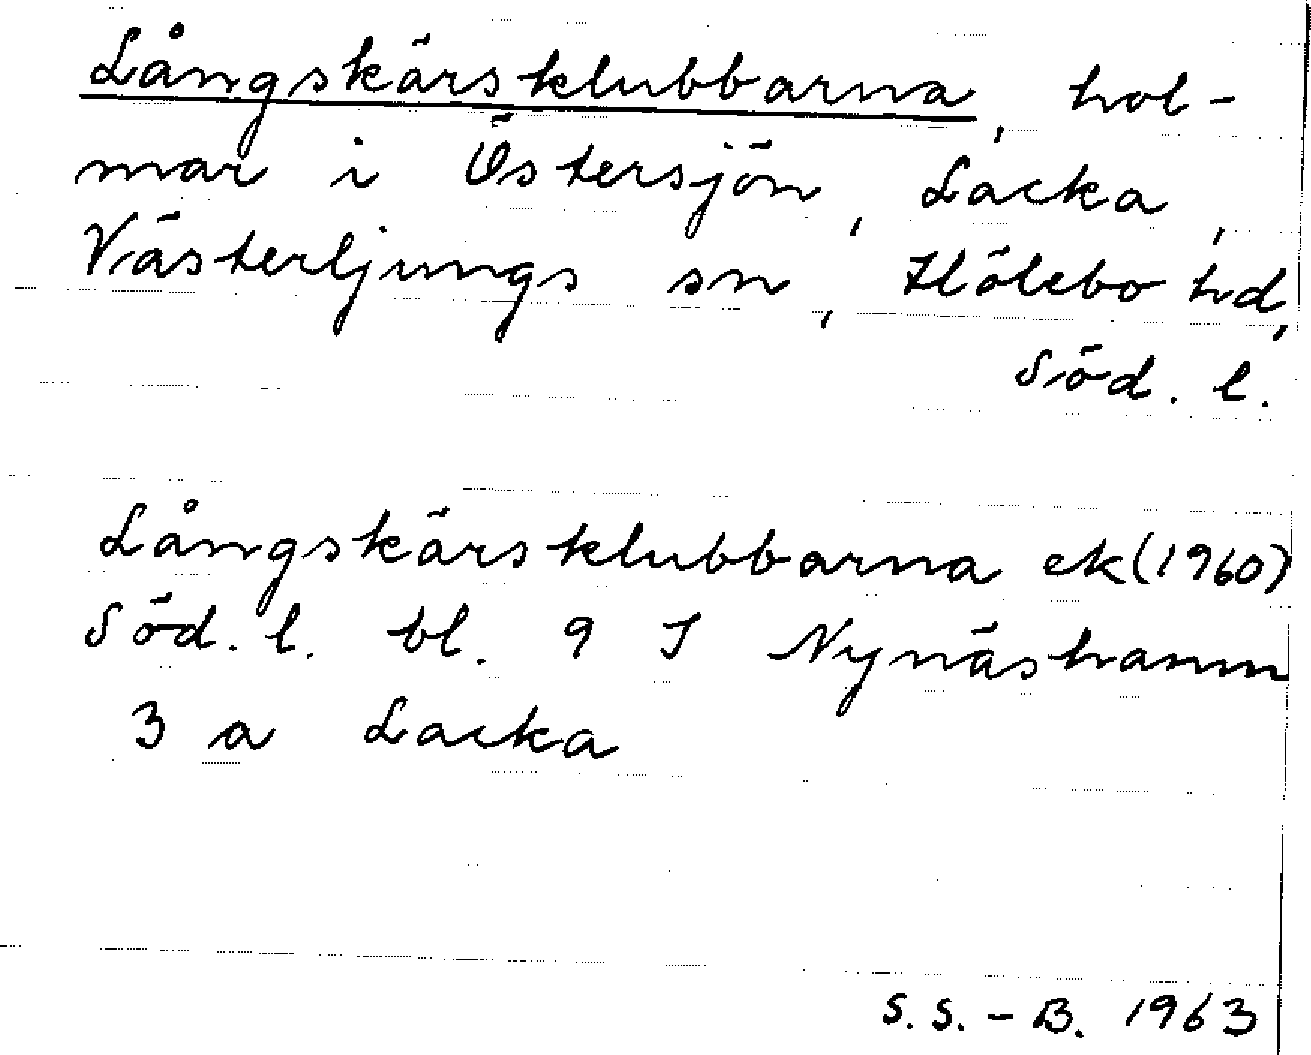 Långskärsklubbarna, hol-
mar i Östersjön, Lacka,
Västerljungs sn, Hölebo hd,
Söd. l.
Långskärsklubbarna ek (1960)
Söd. l. bl. 9 I Nynäshamn
3 a Lacka
S. S. - B. 1963